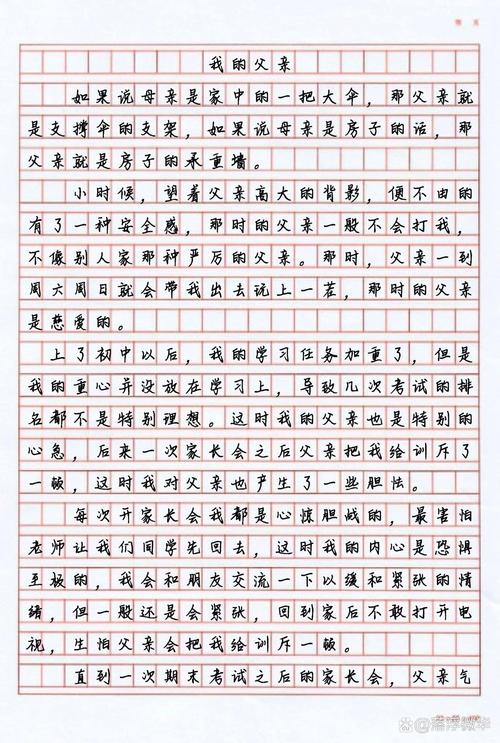 我的父亲
如果说母亲是家中的一把大伞，那父亲就
是支撑伞的支架，如果说母亲是房子的话，那
父亲就是房子的承重墙。
小时候，望着父亲高大的背影，便不由的
有了一种安全感，那时的父亲一般不会打我，
不像别人家那种严厉的父亲。那时，父亲一到
周六周日就会带我出去玩上一茬，那时的父亲
是慈爱的。
上了初中以后，我的学习任务加重了，但是
我的重心并没放在学习上，导致几次考试的排
名都不是特别理想。这时我的父亲也是特别的
心急，后来一次家长会之后父亲把我给训斥了
一顿，这时我对父亲也产生了一些胆怯。
每次开家长会我都是心惊胆战的，最害怕
老师让我们同学先回去，这时我的内心是恐惧
至极的，我会和朋友交流一下以缓和紧张的情
绪，但一般还是会紧张，回到家后不敢打开电
视，生怕父亲会把我给训斥一顿。
直到一次期末考试之后的家长会，父亲气